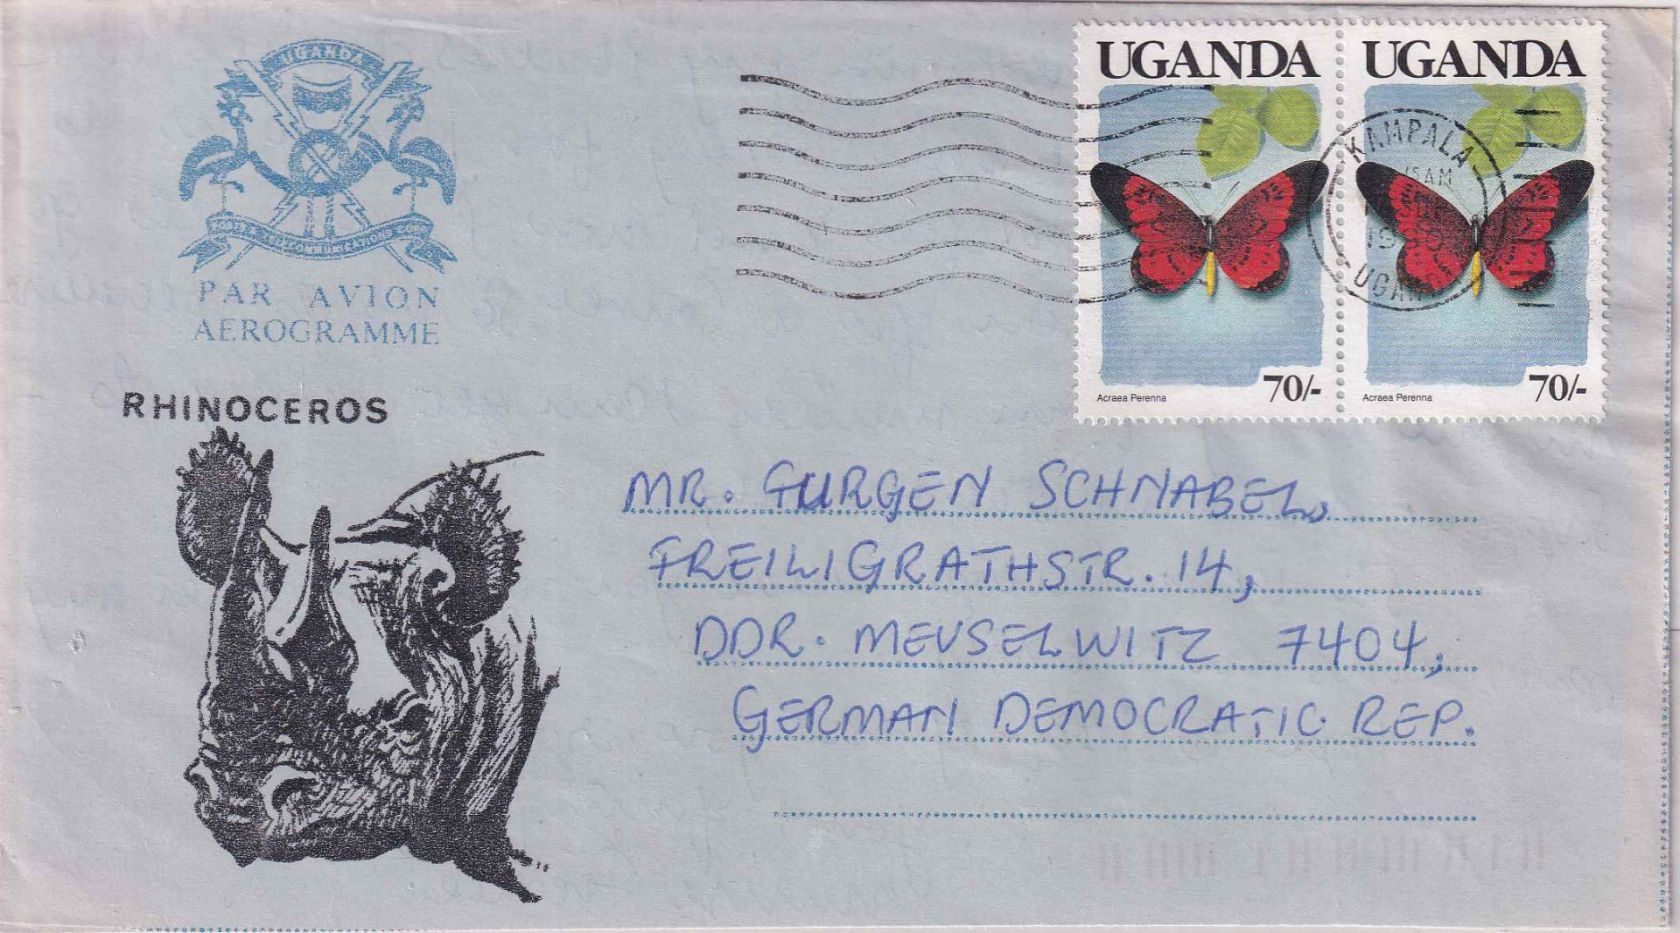 UGANDA
PAR AVION
AEROGRAMME
RHINOCEROS
UGANDA
Acraea Perenna 70/-
UGANDA
Acraea Perenna 70/-
KAMPALA
AM
19
MR. GURGEN SCHNABEL,
FREILIGRATHSTR. 14,
DDR. MEUSELWITZ 7404,
GERMAN DEMOCRATIC REP.